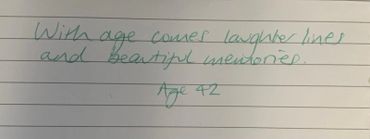 With age comes laughter lines
and beautiful memories.
Age 42